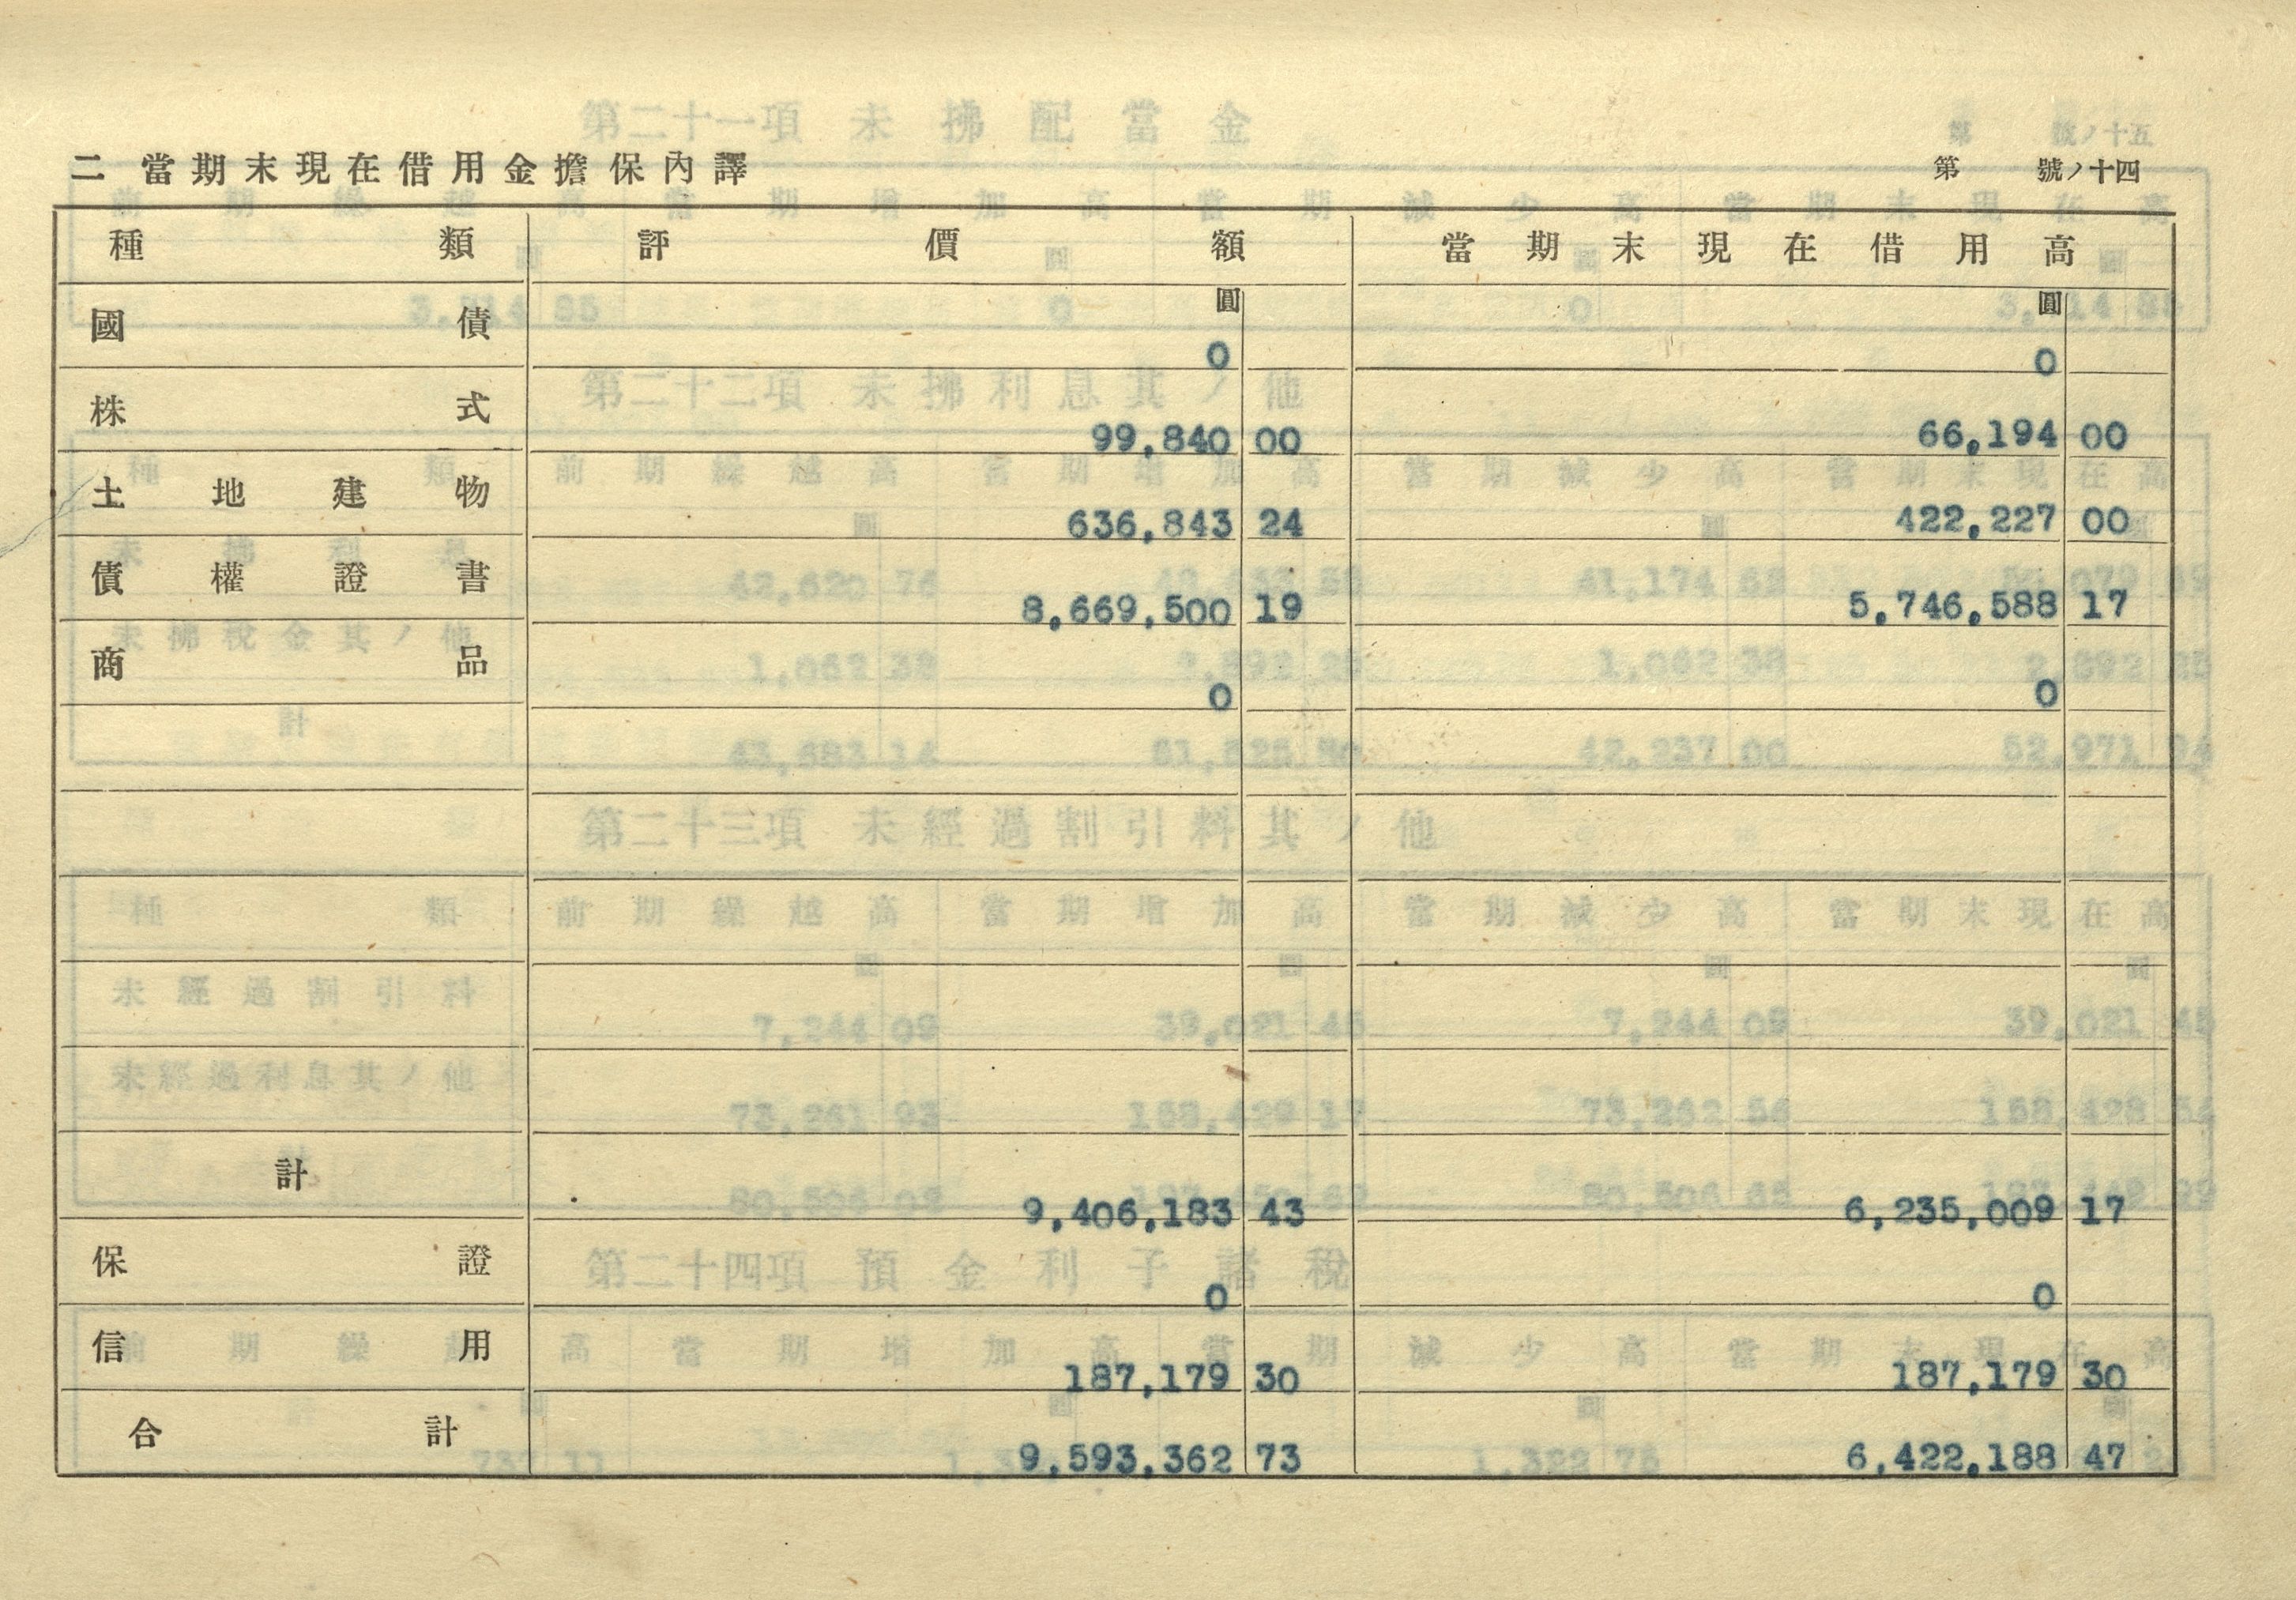 二 當期末現在借用金擔保內譯
第 號ノ十四
種類 評價額 當期末現在借用高
圓 圓
國債 0 0
株式 99,840 00 66,194 00
土地建物 636,843 24 422,227 00
債權證書 8,669,500 19 5,746,588 17
商品 0 0
計 9,406,183 43 6,235,009 17
保證 0 0
信用 187,179 30 187,179 30
合計 9,593,362 73 6,422,188 47